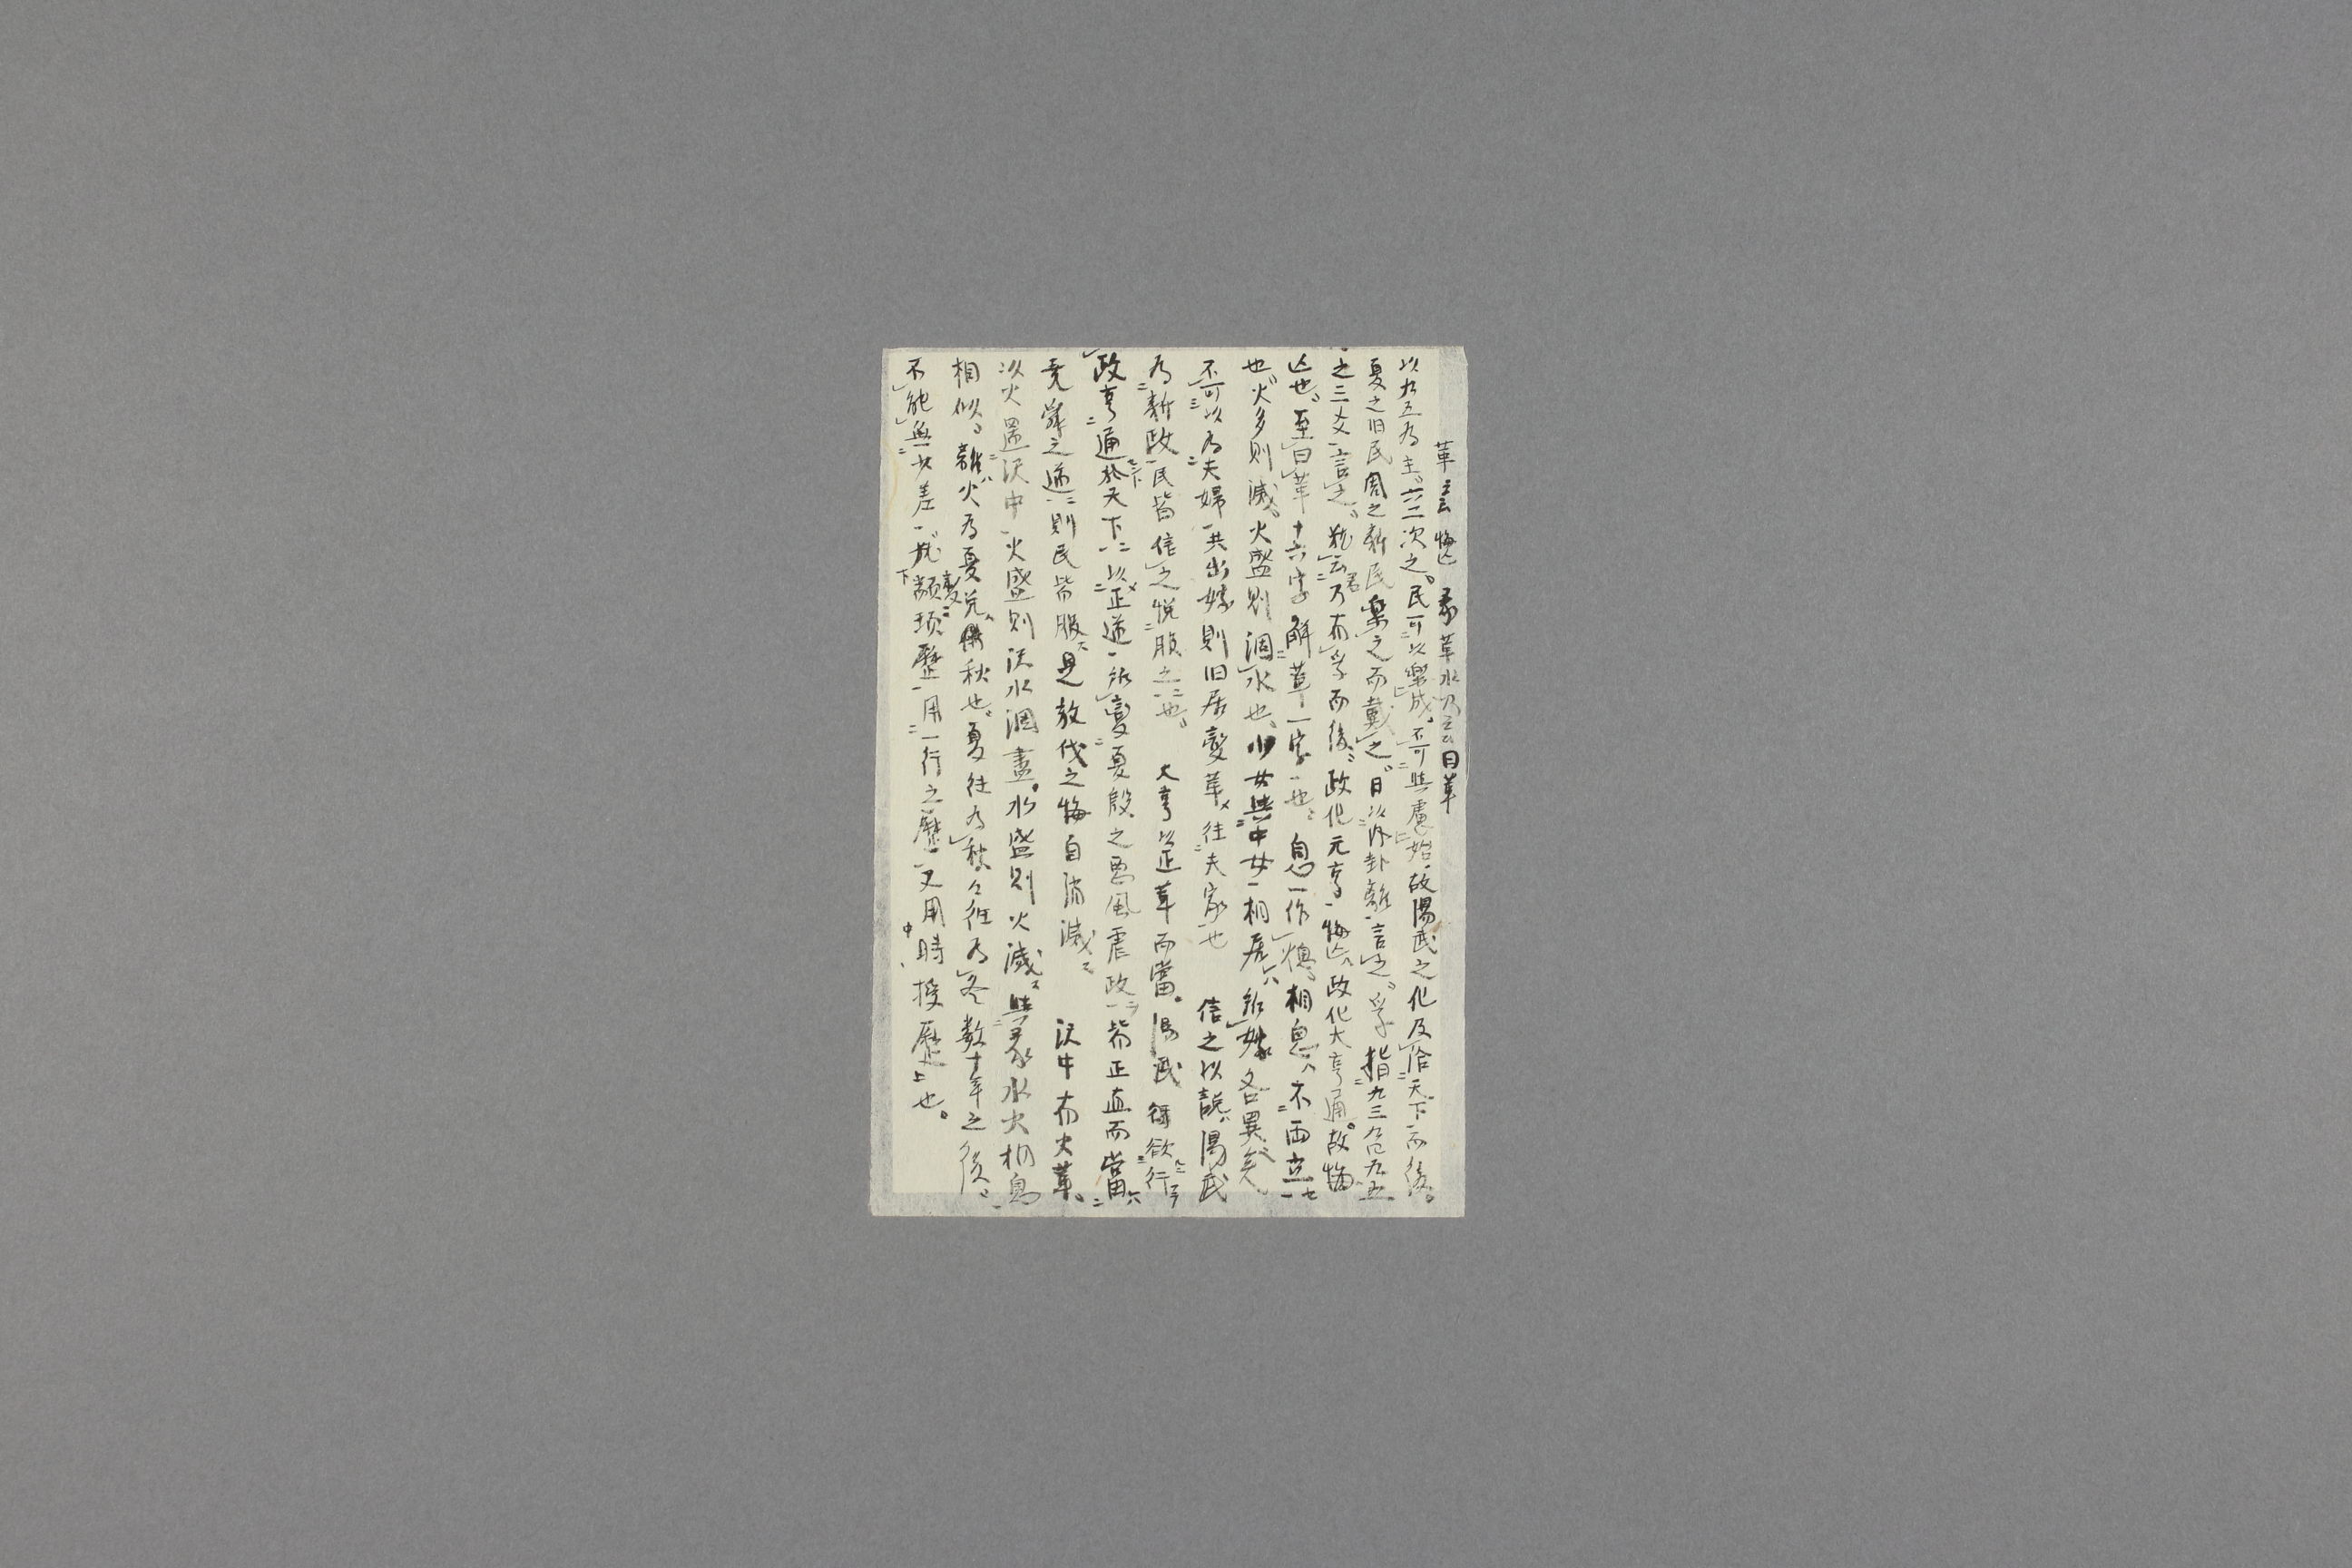 革 言 悔亡 彖 革水乃云曰革
以九五為主。六二次之。民可以樂成。不可與慮始。故湯武之化及俗天下而後。
夏之旧民周之新民楽之而戴之。日以内卦離言之。孚指九三九四九五
之三爻言之。乃有孚而後政化元亨悔亡。政化大亨通。故悔
亡也。至曰革十六字解革一字也。息一作熄。相息不両立
也。火多則滅。火盛則涸水也。少女與中女相居。所嫁各異矣。
不可以為夫婦共出嫁則旧居變革往夫家也 信之以説 湯武
為新政民皆信之悦服之也。 大亨以正革而當。湯武 欲行
政亨通於天下以正道所變夏殷之悪風虐政皆正直而當
堯舜之道則民皆服是放伐之悔自消滅 沢中有火革。
以火置沢中火盛則沢水涸盡。水盛則火滅。與彖水火相息
相似。離火為夏兌秋也。夏往為秋々往為冬数十年之後
不能無少差故變顓頊歷用一行之歷又用時授歷也。